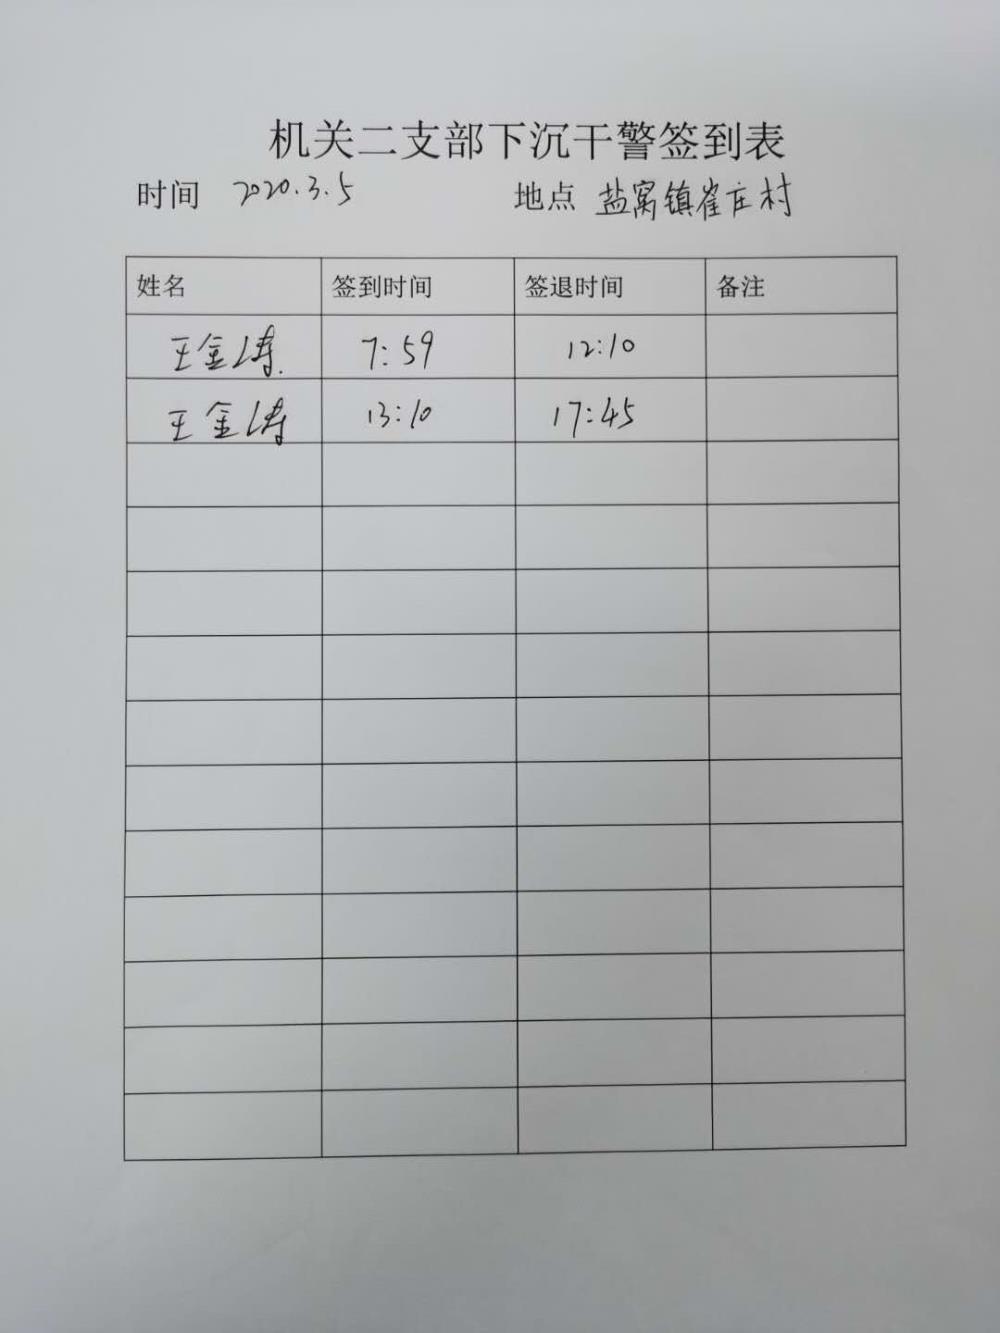 机关二支部下沉干警签到表
时间 2020.3.5 地点 盐窝镇崔庄村
姓名 签到时间 签退时间 备注
王金涛 7:59 12:10
王金涛 13:10 17:45